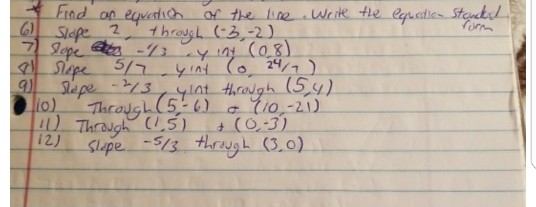 * Find an equation of the line. Write the equation Standard form
6) Slope 2, through (-3,-2)
7) Slope -1/3, y int (0,8)
8) Slope 5/7, y int (0, 24/7)
9) Slope -2/3, y int through (5,4)
10) Through (5,-6) + (10,-21)
11) Through (1,5) + (0,-3)
12) Slope -5/3 through (3,0)